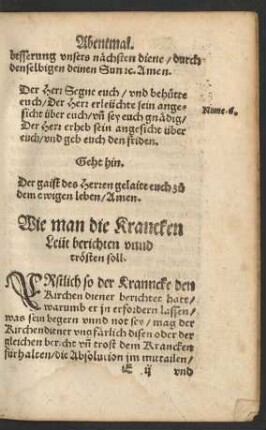 Abentmal.
besserung vnsers nächsten diene / durch
denselbigen deinen Sun ꝛc. Amen.
Der Herr Segne euch / vnd behütte
euch / Der Herr erleüchte sein ange-
sicht über euch / vñ sey euch gnädig /
Der Herr erheb sein angesicht über
euch / vnd geb euch den friden.
Nume. 6.
Geht hin.
Der gaist des Herren gelaitt euch zů
dem ewigen leben / Amen.
Wie man die Krancken
Leüt berichten vnnd
trösten soll.
ERstlich so der Kranncke den
Kirchendiener berichtet hatt /
warumb er jn erfordern lassen /
was sein begern vnnd not sey / mag der
Kirchendiener vngfärlich disen oder der
gleichen bericht vñ trost dem Krancken
fürhalten / die Absolution jm mittailen /
E ij vnd